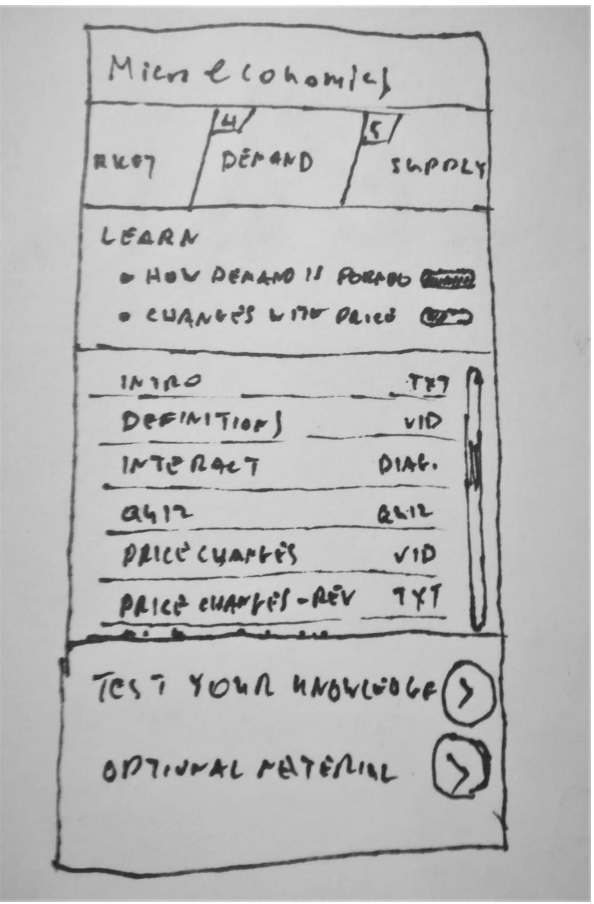 Microeconomics
4 5
RKET DEMAND SUPPLY
LEARN
• HOW DEMAND IS FORMED
• CHANGES WITH PRICE
INTRO TXT
DEFINITIONS VID
INTERACT DIAG.
QUIZ QUIZ
PRICE CHANGES VID
PRICE CHANGES-REV TXT
TEST YOUR KNOWLEDGE >
OPTIONAL MATERIAL >